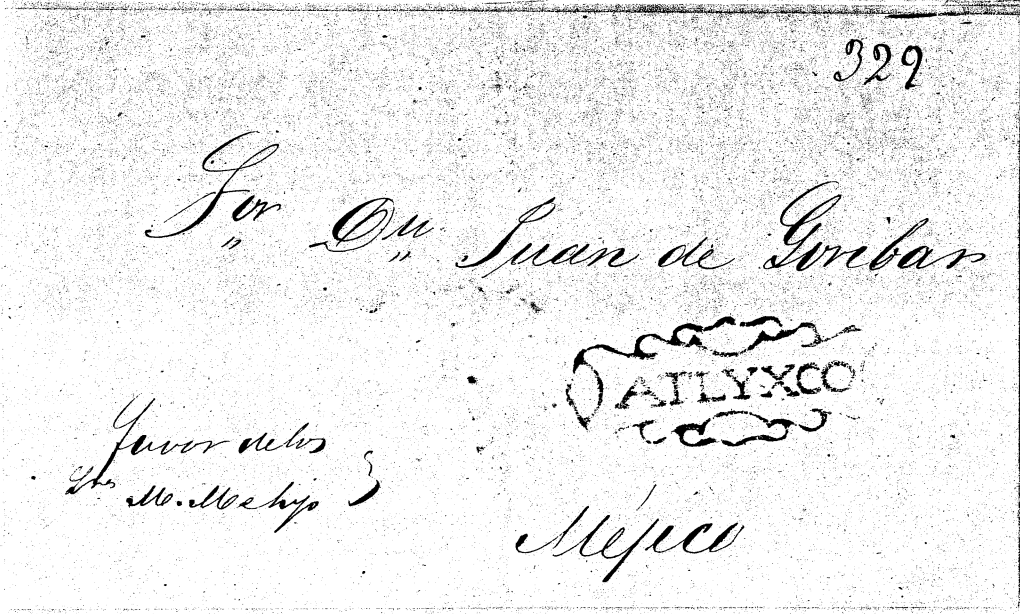 329
Sor Dn Juan de Goribar
ATLYXCO
favor de los
Sres M. M e hijo
Méjico